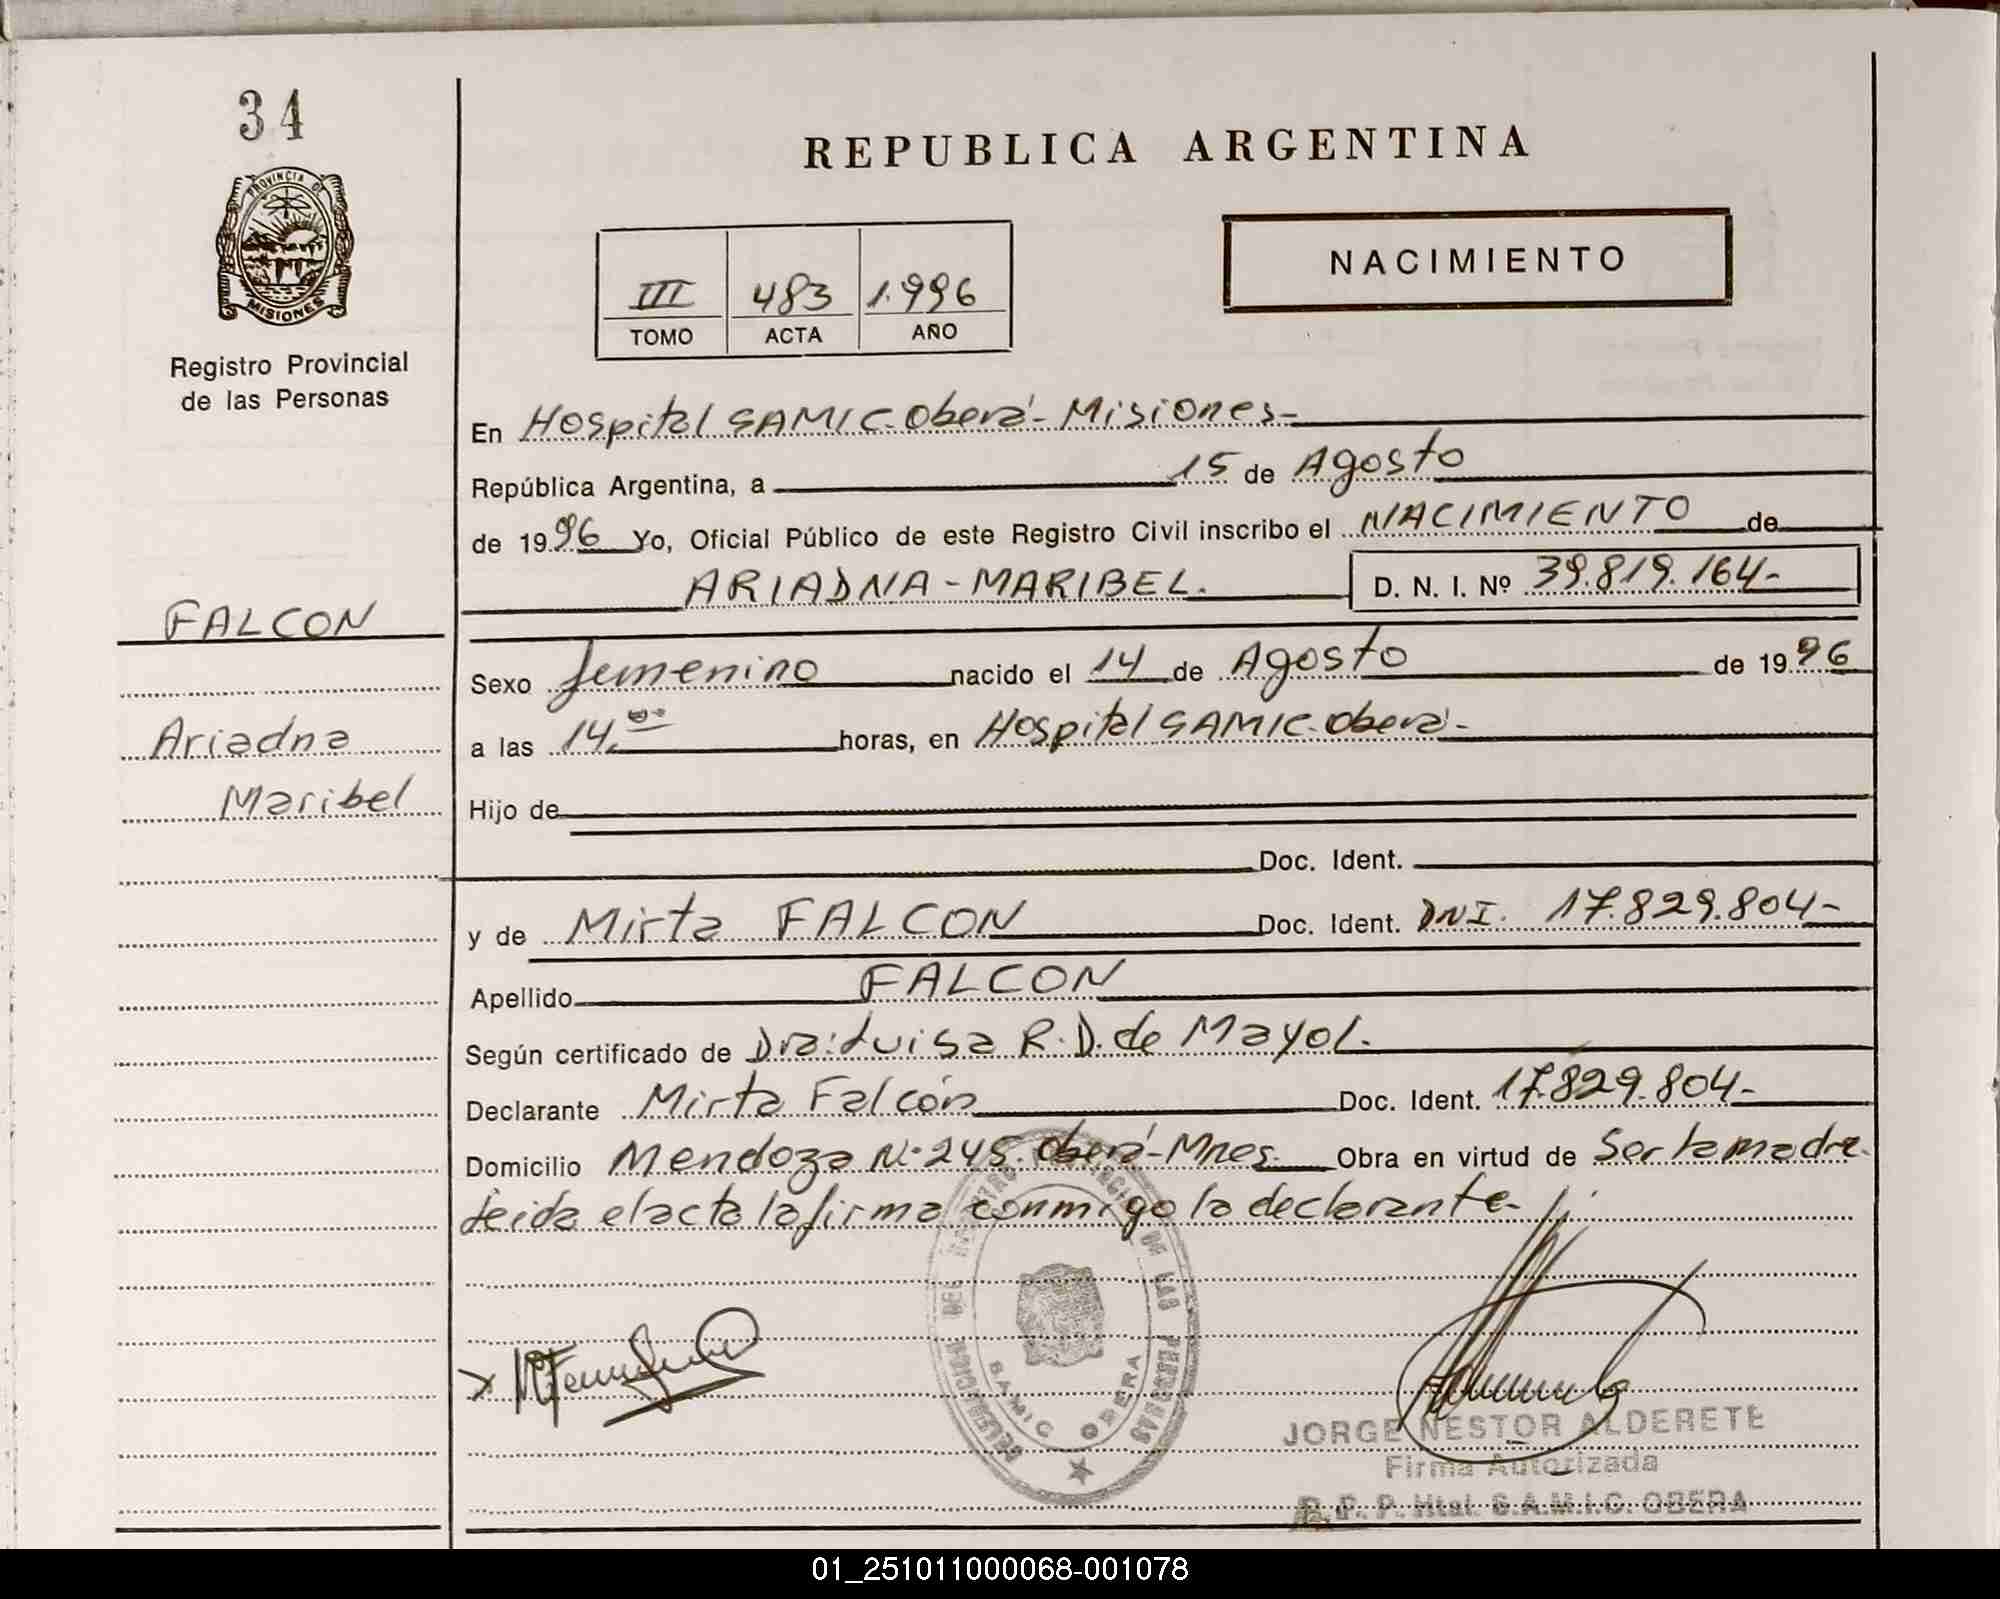 34
REPUBLICA ARGENTINA
PROVINCIA DE
MISIONES
Registro Provincial
de las Personas
III 483 1.996
TOMO ACTA AÑO
NACIMIENTO
En Hospital SAMIC. Oberá - Misiones -
República Argentina, a 15 de Agosto
de 1996 Yo, Oficial Público de este Registro Civil inscribo el NACIMIENTO de
ARIADNA - MARIBEL. D. N. I. Nº 39.819.164-
FALCON
Sexo femenino nacido el 14 de Agosto de 1996
Ariadna
a las 14.00 horas, en Hospital SAMIC. Oberá -
Maribel
Hijo de
Doc. Ident.
y de Mirta FALCON Doc. Ident. DNI. 17.829.804-
Apellido FALCON
Según certificado de Dra: Luisa R. D. de Mayol.
Declarante Mirta Falcón Doc. Ident. 17.829.804-
Domicilio Mendoza Nº 245. Oberá - Mnes. Obra en virtud de Ser la madre.
Leida el acta la firma conmigo la declarante.
DELEGACION DEL REGISTRO PROVINCIAL DE LAS PERSONAS
SAMIC OBERA
JORGE NESTOR ALDERETE
Firma Autorizada
R. P. P. Htal. S.A.M.I.C. OBERA
01_251011000068-001078